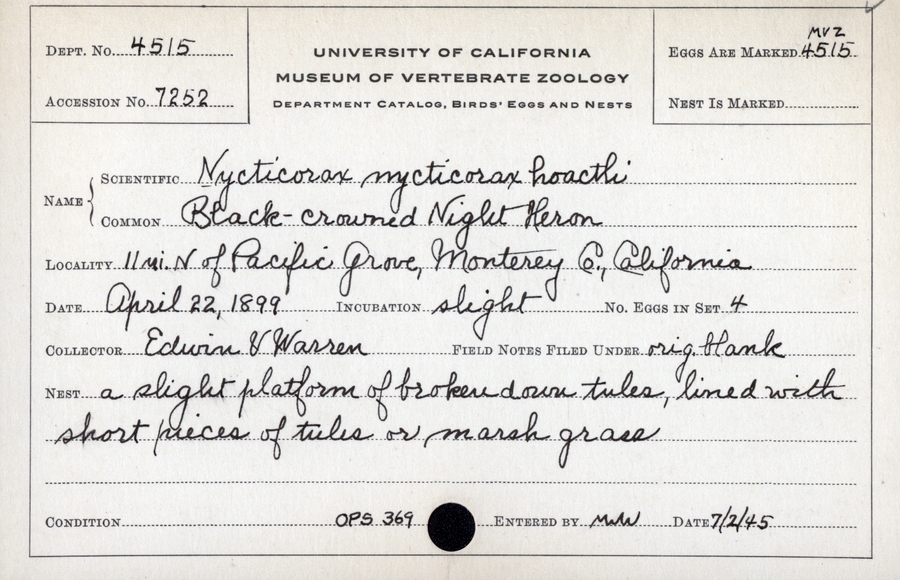 Dept. No. 4515
UNIVERSITY OF CALIFORNIA
MUSEUM OF VERTEBRATE ZOOLOGY
Department Catalog, Birds' Eggs and Nests
MVZ
Eggs Are Marked 4515
Accession No. 7252
Nest Is Marked
Name
Scientific Nycticorax nycticorax hoactli
Common Black-crowned Night Heron
Locality 11 mi. N of Pacific Grove, Monterey Co., California
Date April 22, 1899 Incubation slight No. Eggs in Set 4
Collector Edwin V Warren Field Notes Filed Under orig. blank
Nest a slight platform of broken down tules, lined with
short pieces of tules or marsh grass
Condition OPS 369 Entered by Date 7/2/45